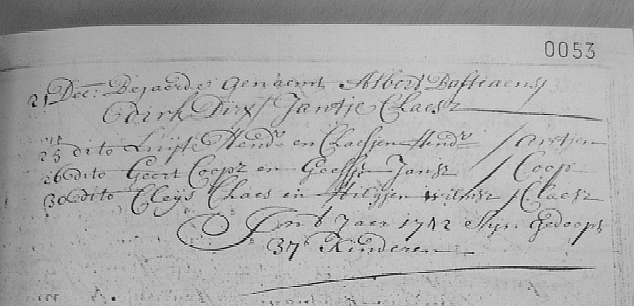 0053
21 Dec: Bejaerde Genaemt Albert Bastiaens
Dirk Dirx Jantje Claesz
25 dito Luijte Hendr en Claesjen Hendr / Antjen
26 dito Geert Coopz en Geesje Jansz / Coop
30 dito Cleijs Claes en Hilgjen Wilmsz / Claesz
In t Jaer 1742 Sijn Gedoopt
37 Kinderen